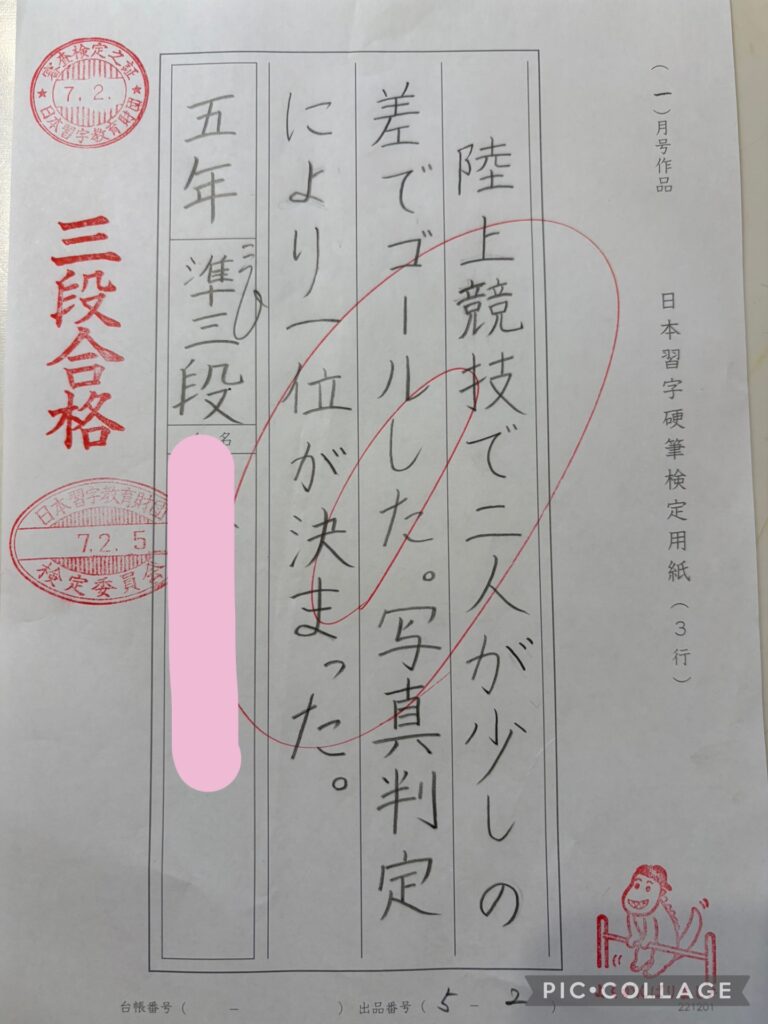 (一)月号作品 日本習字硬筆検定用紙(3行)
陸上競技で二人が少しの
差でゴールした。写真判定
により一位が決まった。
五年 準三段
名
審査検定之証
7.2.
日本習字教育財団
三段合格
日本習字教育財団
7.2.5
検定委員会
台帳番号( － ) 出品番号(5－2)
PIC•COLLAGE
221201